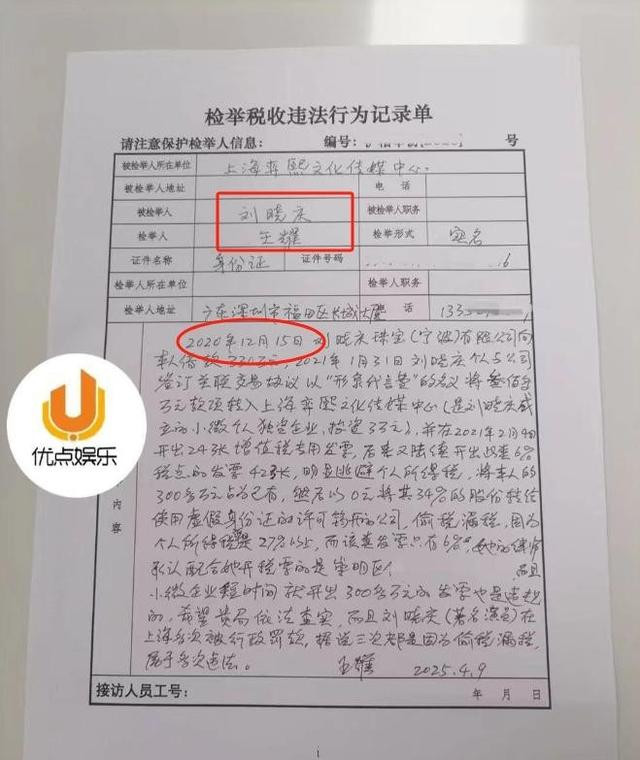 检举税收违法行为记录单
请注意保护检举人信息： 编号： 号
被检举人所在单位 上海弈熙文化传媒中心.
被检举人地址 电 话
被检举人 刘晓庆 被检举人职务
检举人 王耀 检举形式 实名
证件名称 身份证 证件号码 16
检举人所在单位 检举人职务
检举人地址 广东深圳市福田区长城大厦 电 话 133
2020年12月15日 刘晓庆珠宝(宁波)有限公司向
本人借款330万元, 2021年1月31日刘晓庆个人与公司
签订关联交易协议 以“形象代言费”的名义将叁佰
万元款项转入上海弈熙文化传媒中心(是刘晓庆成
立的小微个人独资企业, 投资3万元), 并在2021年2月4日
开出24张增值税专用发票, 后来又陆续开出 6%
税点的发票42张, 明显逃避个人所得税, 将本人的
300多万元占为己有, 然后以0元将其34%的股份转给
使用虚假身份证的许可 的公司, 偷税漏税, 因为
个人所得税 27%以上, 而该类发票只有6%, 她的律师
承认配合她开税票的是崇明区 而且
小微企业短时间 开出300多万元的发票也是违规
的, 希望贵局依法查实, 而且刘晓庆(著名演员)在
上海多次被行政罚款, 据说三次都是因为偷税漏税,
属于多次违法。
王耀 2025.4.9
内
容
接访人员工号： 年 月 日
优点娱乐